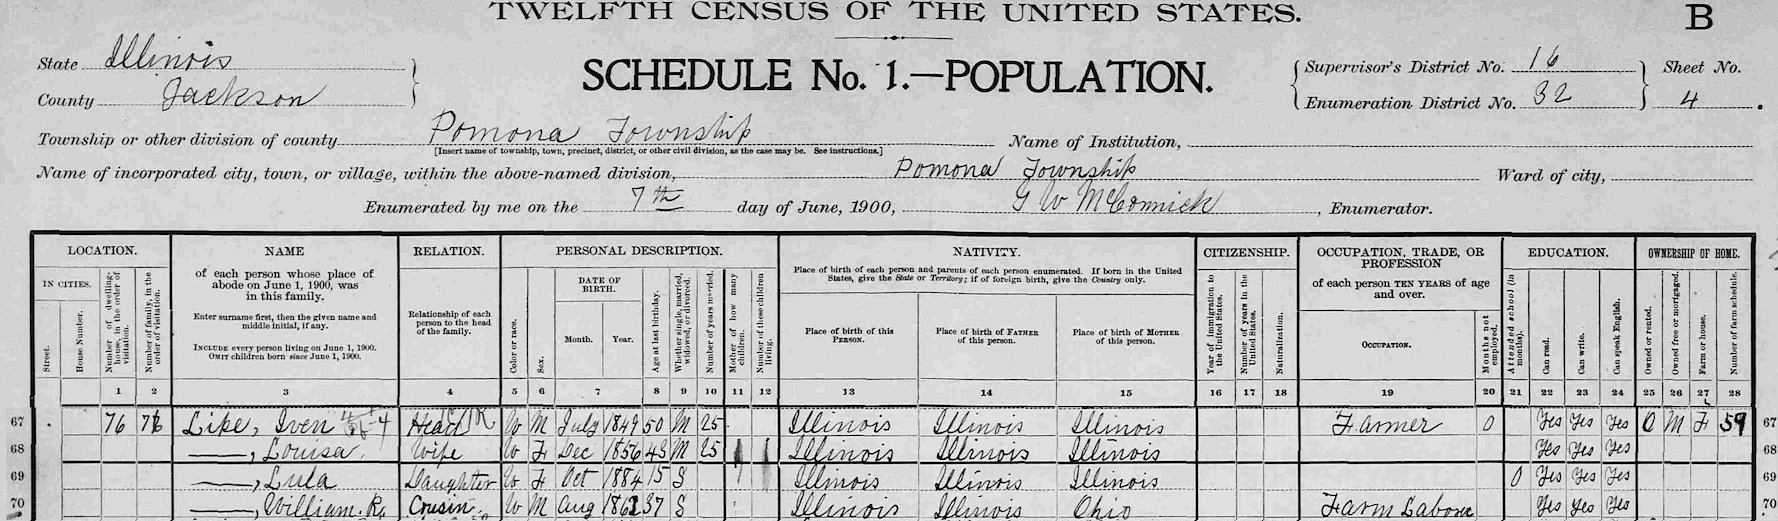 TWELFTH CENSUS OF THE UNITED STATES.
B
State Illinois
County Jackson
SCHEDULE No. 1.—POPULATION.
Supervisor's District No. 16
Enumeration District No. 32
Sheet No.
4
Township or other division of county Pomona Township
[Insert name of township, town, precinct, district, or other civil division, as the case may be. See instructions.]
Name of Institution,
Name of incorporated city, town, or village, within the above-named division, Pomona Township
Ward of city,
Enumerated by me on the 7th day of June, 1900, G W McCormick, Enumerator.
LOCATION.
IN CITIES.
Street.
House Number.
Number of dwelling-house, in the order of visitation.
Number of family, in the order of visitation.
NAME
of each person whose place of
abode on June 1, 1900, was
in this family.
Enter surname first, then the given name and
middle initial, if any.
INCLUDE every person living on June 1, 1900.
OMIT children born since June 1, 1900.
RELATION.
Relationship of each
person to the head
of the family.
PERSONAL DESCRIPTION.
Color or race.
Sex.
DATE OF
BIRTH.
Month.
Year.
Age at last birthday.
Whether single, married, widowed, or divorced.
Number of years married.
Mother of how many children.
Number of these children living.
NATIVITY.
Place of birth of each person and parents of each person enumerated. If born in the United
States, give the State or Territory; if of foreign birth, give the Country only.
Place of birth of this
PERSON.
Place of birth of FATHER
of this person.
Place of birth of MOTHER
of this person.
CITIZENSHIP.
Year of immigration to the United States.
Number of years in the United States.
Naturalization.
OCCUPATION, TRADE, OR
PROFESSION
of each person TEN YEARS of age
and over.
OCCUPATION.
Months not employed.
EDUCATION.
Attended school (in months).
Can read.
Can write.
Can speak English.
OWNERSHIP OF HOME.
Owned or rented.
Owned free or mortgaged.
Farm or house.
Number of farm schedule.
1 2 3 4 5 6 7 8 9 10 11 12 13 14 15 16 17 18 19 20 21 22 23 24 25 26 27 28
67 76 76 Lipe, Iven Head W M July 1849 50 M 25 Illinois Illinois Illinois Farmer 0 Yes Yes Yes O M F 59 67
68 ——, Louisa Wife W F Dec 1856 43 M 25 Illinois Illinois Illinois Yes Yes Yes 68
69 ——, Lula Daughter W F Oct 1884 15 S Illinois Illinois Illinois 0 Yes Yes Yes 69
70 ——, William R. Cousin W M Aug 37 S Illinois Illinois Ohio Farm Laborer Yes Yes Yes 70